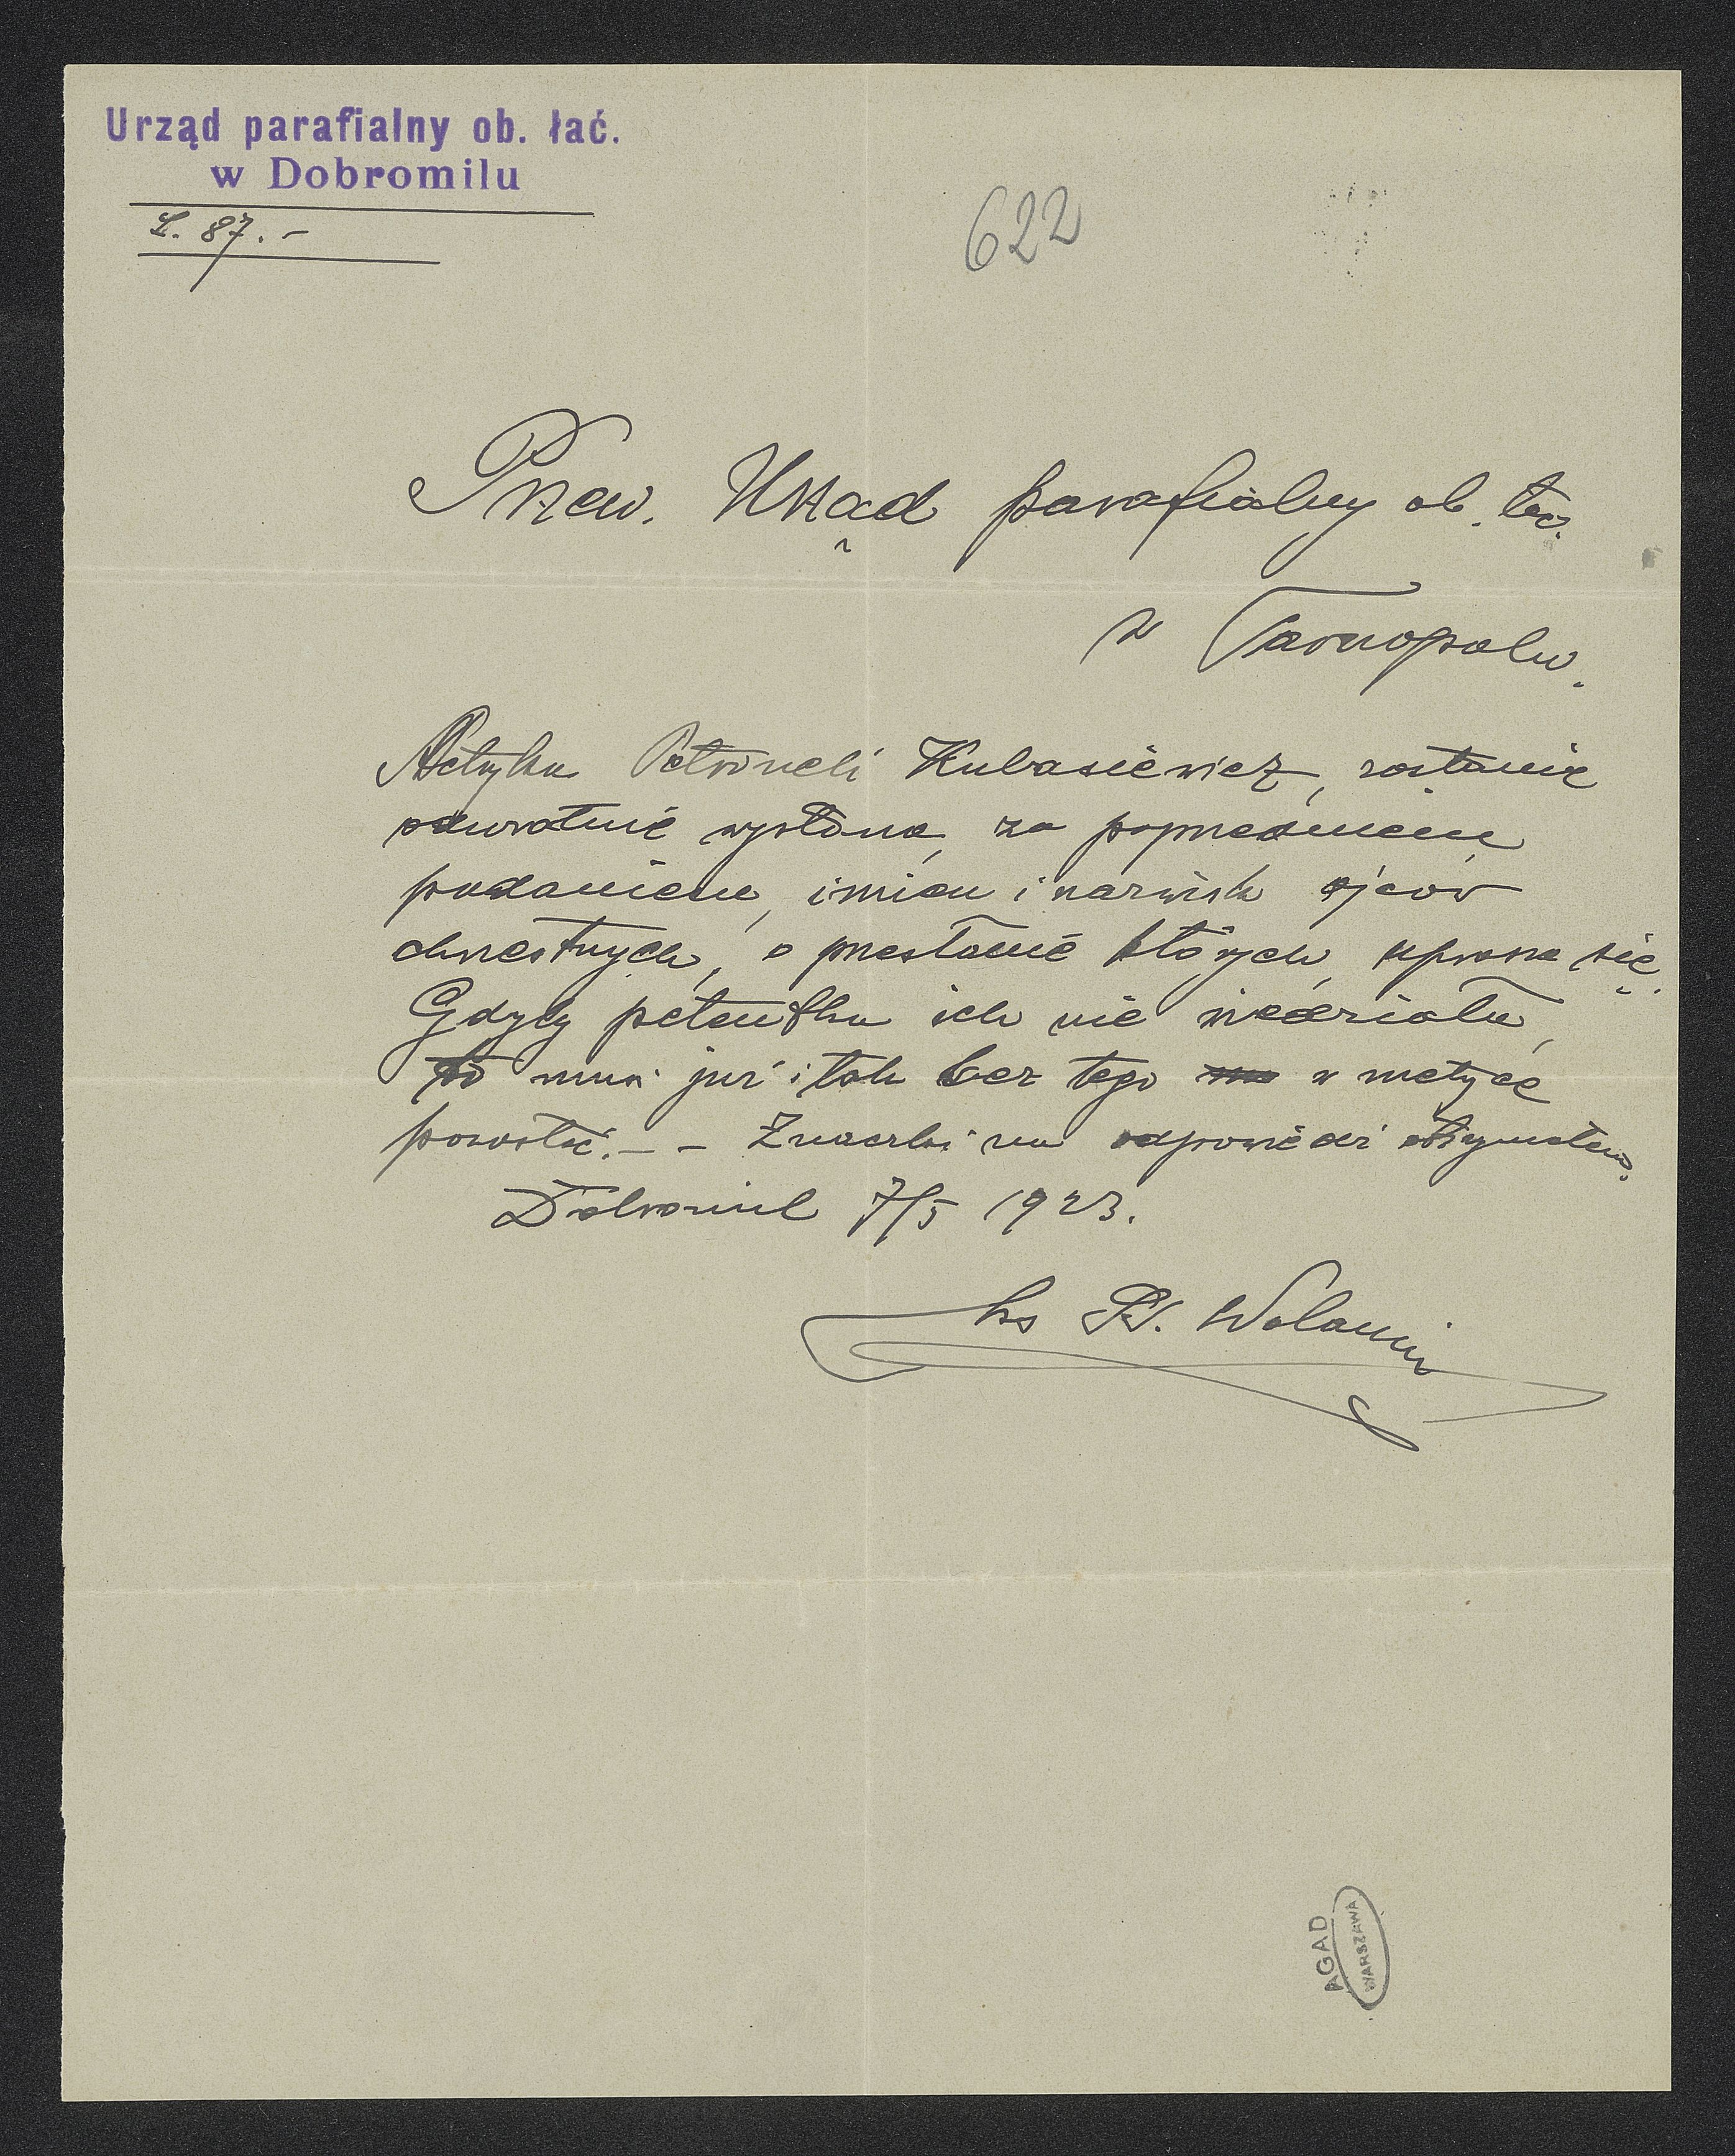 Urząd parafialny ob. łać.
w Dobromilu
L. 87. -
622
Przew. Urząd parafialny ob. łac.
w Tarnopolu.
Metryka Petroneli Kubasiewicz, zostanie
odwrotnie wysłana, za poprzedniem
podaniem, imion i nazwisk ojców
chrzestnych, o przesłanie których, uprasza się.
Gdyby petentka ich nie wiedziała,
to musi już i tak bez tego w metryce
pozostać. - - Znaczki na odpowiedź otrzymałem.
Dobromil 7/5 1923.
ks W. Wolanin
AGAD
WARSZAWA